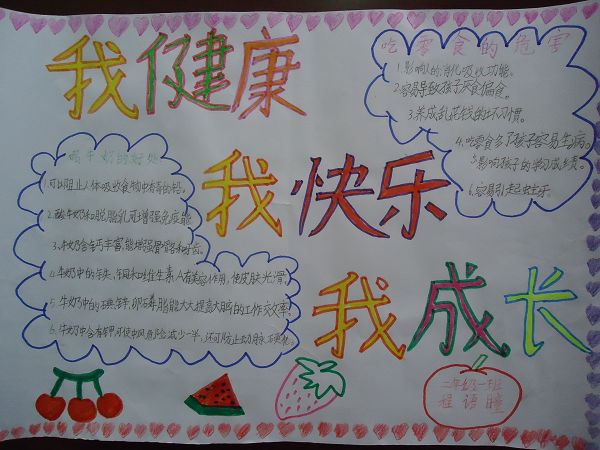 我健康
吃零食的危害
1.影响人的消化吸收功能。
2.容易导致孩子厌食偏食。
3.养成乱花钱的坏习惯。
4.吃零食多了孩子容易生病。
5.影响孩子的学习成绩。
6.容易引起蛀牙。
喝牛奶的好处
1.可以阻止人体吸收食物中有毒的铅。
2.酸牛奶和脱脂乳可增强免疫能
3.牛奶含钙丰富能增强骨骼和牙齿。
4.牛奶中的铁、铜和维生素A有美容作用,使皮肤光滑。
5.牛奶中的碘、锌、卵磷脂能大大提高大脑的工作效率。
6.牛奶中含有钾可使中风危险减少一半,还可防止动脉硬化。
我快乐
我成长
二年级一班
程语瞳